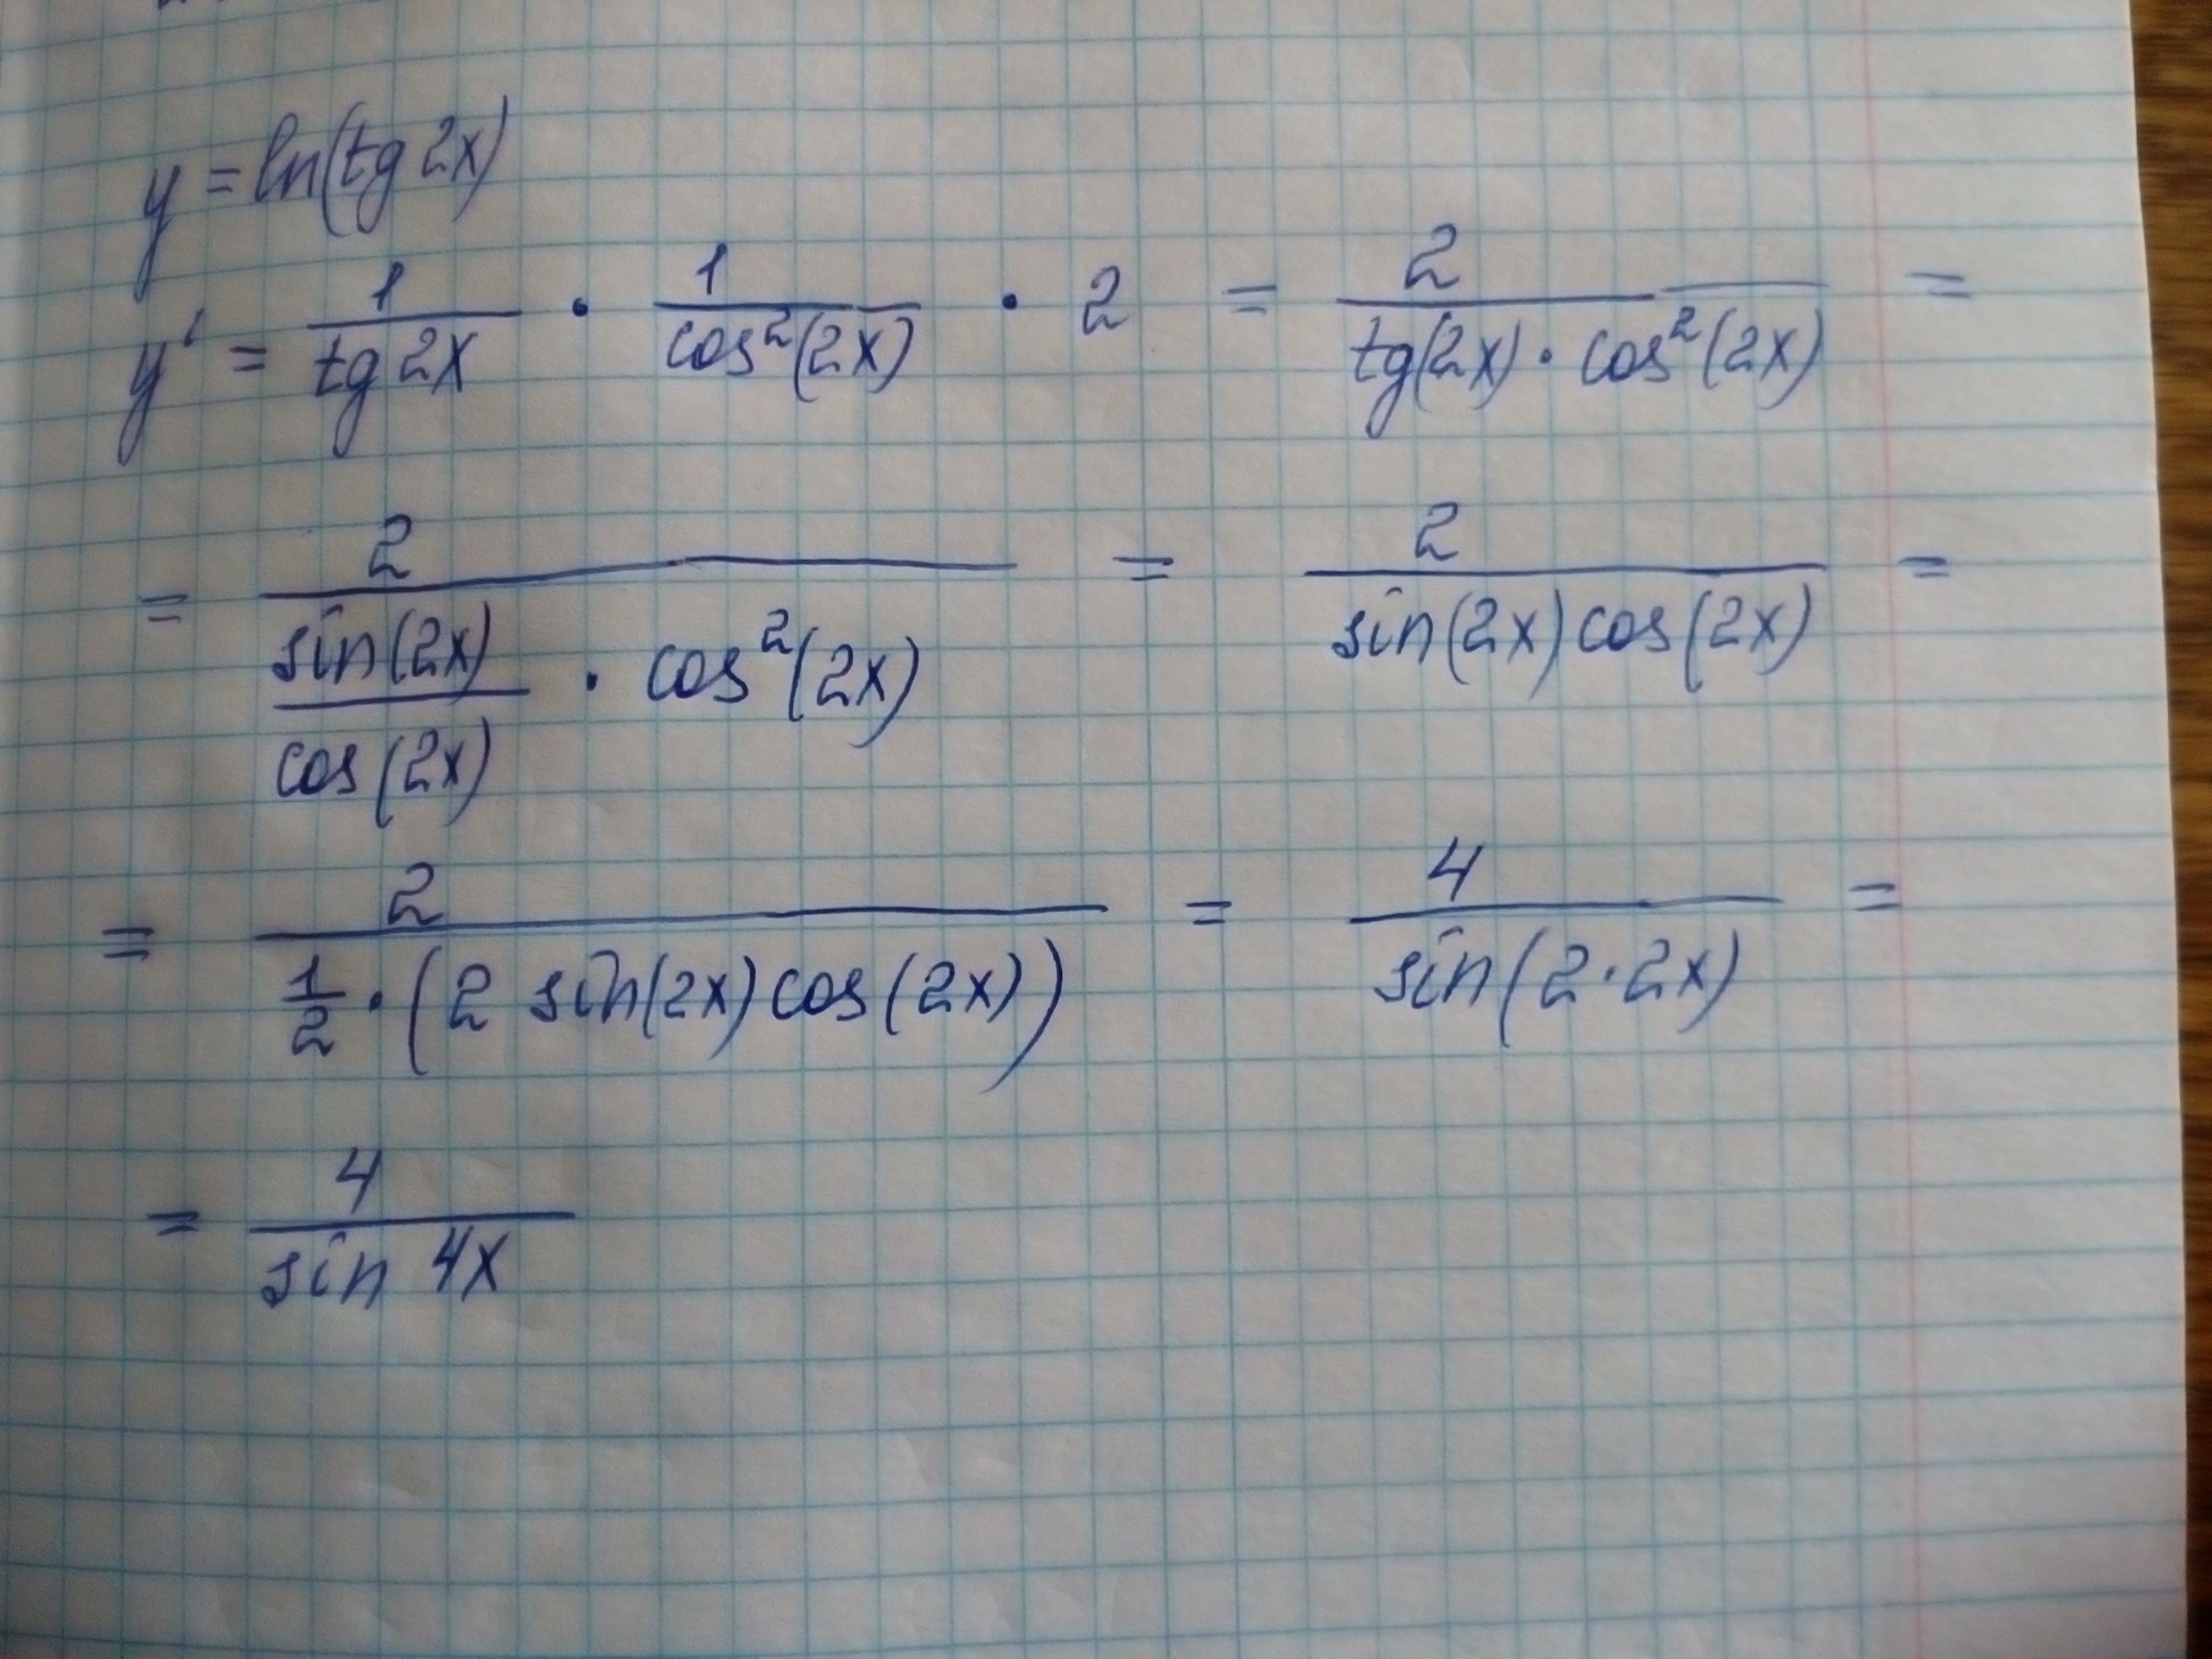 y = ln(tg 2x)
y' = 1/(tg 2x) · 1/(cos²(2x)) · 2 = 2/(tg(2x) · cos²(2x)) =
= 2/(sin(2x)/cos(2x) · cos²(2x)) = 2/(sin(2x) cos(2x)) =
= 2/(1/2 · (2 sin(2x) cos(2x))) = 4/(sin(2·2x)) =
= 4/(sin 4x)